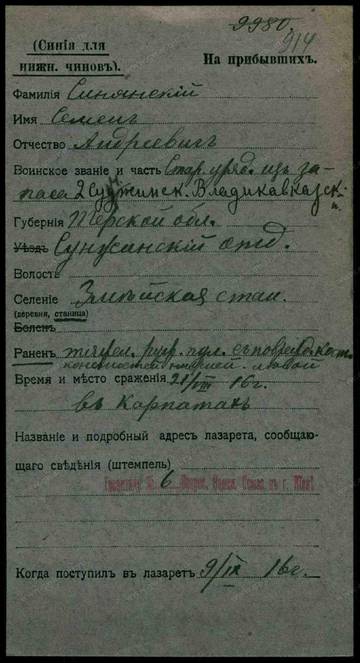 9980
914
(Синія для
нижн. чиновъ).
На прибывшихъ.
Фамилія Синянскій
Имя Семенъ
Отчество Андреевичъ
Воинское званіе и часть Стар. уряд. изъ за-
паса 2 Владикавказск.
Губернія Терской обл.
Уѣздъ Сунженскій отд.
Волость
Селеніе Змейская стан.
(деревня, станица)
Боленъ
Раненъ руж. пул. съ поврежд. кост.
лѣвой
Время и мѣсто сраженія 16 г.
въ Карпатахъ
Названіе и подробный адресъ лазарета, сообщаю-
щаго свѣдѣнія (штемпель)
6
Когда поступилъ въ лазаретъ 9/IX 16 г.